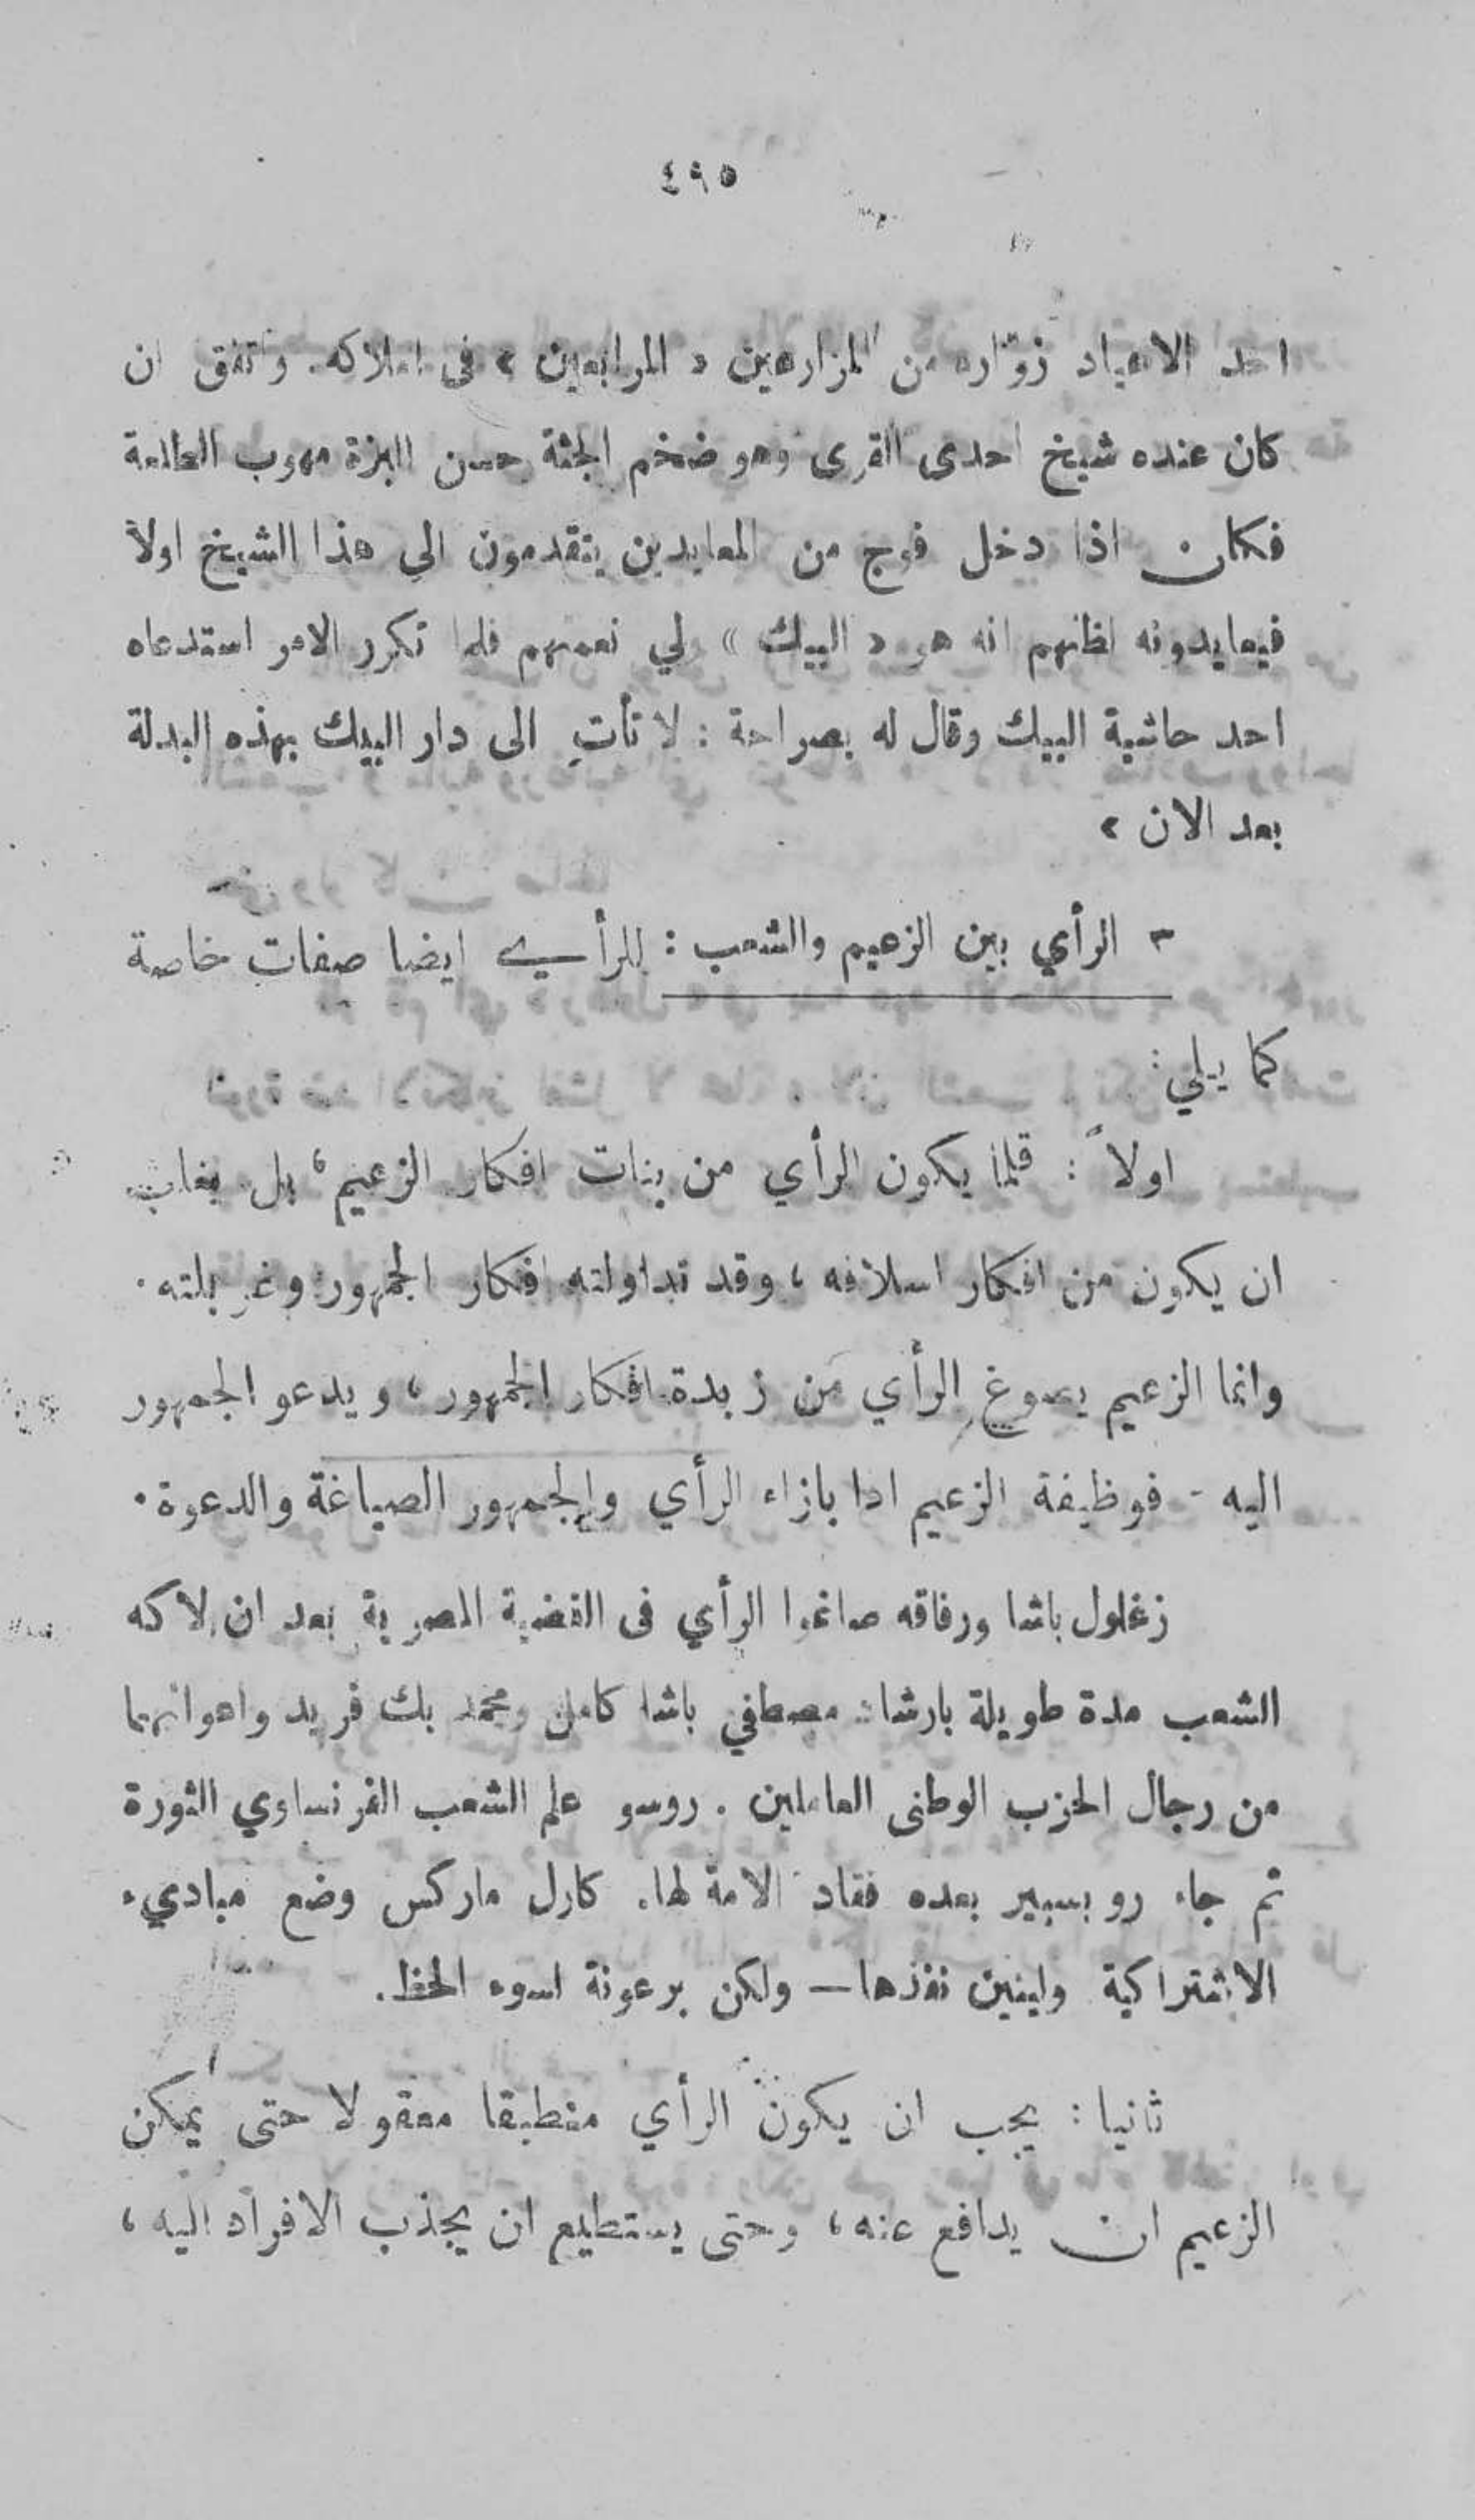 ٤٩٥
احد الاعياد زوّاره من المزارعين « المرابعين » فى املاكه. واتفق ان
كان عنده شيخ احدى القرى وهو ضخم الجثة حسن البزة مهوب الطلعة
فكان اذا دخل فوج من المعايدين يتقدمون الى هذا الشيخ اولاً
فيعايدونه لظنهم انه هو « البيك » ولي نعمتهم فلما تكرر الامر استدعاه
احد حاشية البيك وقال له بصراحة : لا تأتِ الى دار البيك بهذه البدلة
بعد الان »
٣ الرأي بين الزعيم والشعب : للرأي ايضا صفات خاصة
كما يلي:
اولاً : قلما يكون الرأي من بنات افكار الزعيم، بل يغلب
ان يكون من افكار اسلافه ، وقد تداولته افكار الجمهور وغربلته .
وانما الزعيم يصوغ الرأي من زبدة افكار الجمهور ، ويدعو الجمهور
اليه - فوظيفة الزعيم اذا بازاء الرأي والجمهور الصياغة والدعوة .
زغلول باشا ورفاقه صاغوا الرأي فى القضية المصرية بعد ان لاكه
الشعب مدة طويلة بارشاد مصطفي باشا كامل ومحمد بك فريد واعوانهما
من رجال الحزب الوطنى العاملين . روسو علم الشعب الفرنساوي الثورة
ثم جاء روبسبير بعده فقاد الامة لها. كارل ماركس وضع مباديء
الاشتراكية ولينين نفذها — ولكن برعونة لسوء الحظ.
ثانيا : يجب ان يكون الرأي منطبقا معقولا حتى يمكن
الزعيم ان يدافع عنه ، وحتى يستطيع ان يجذب الافراد اليه ،